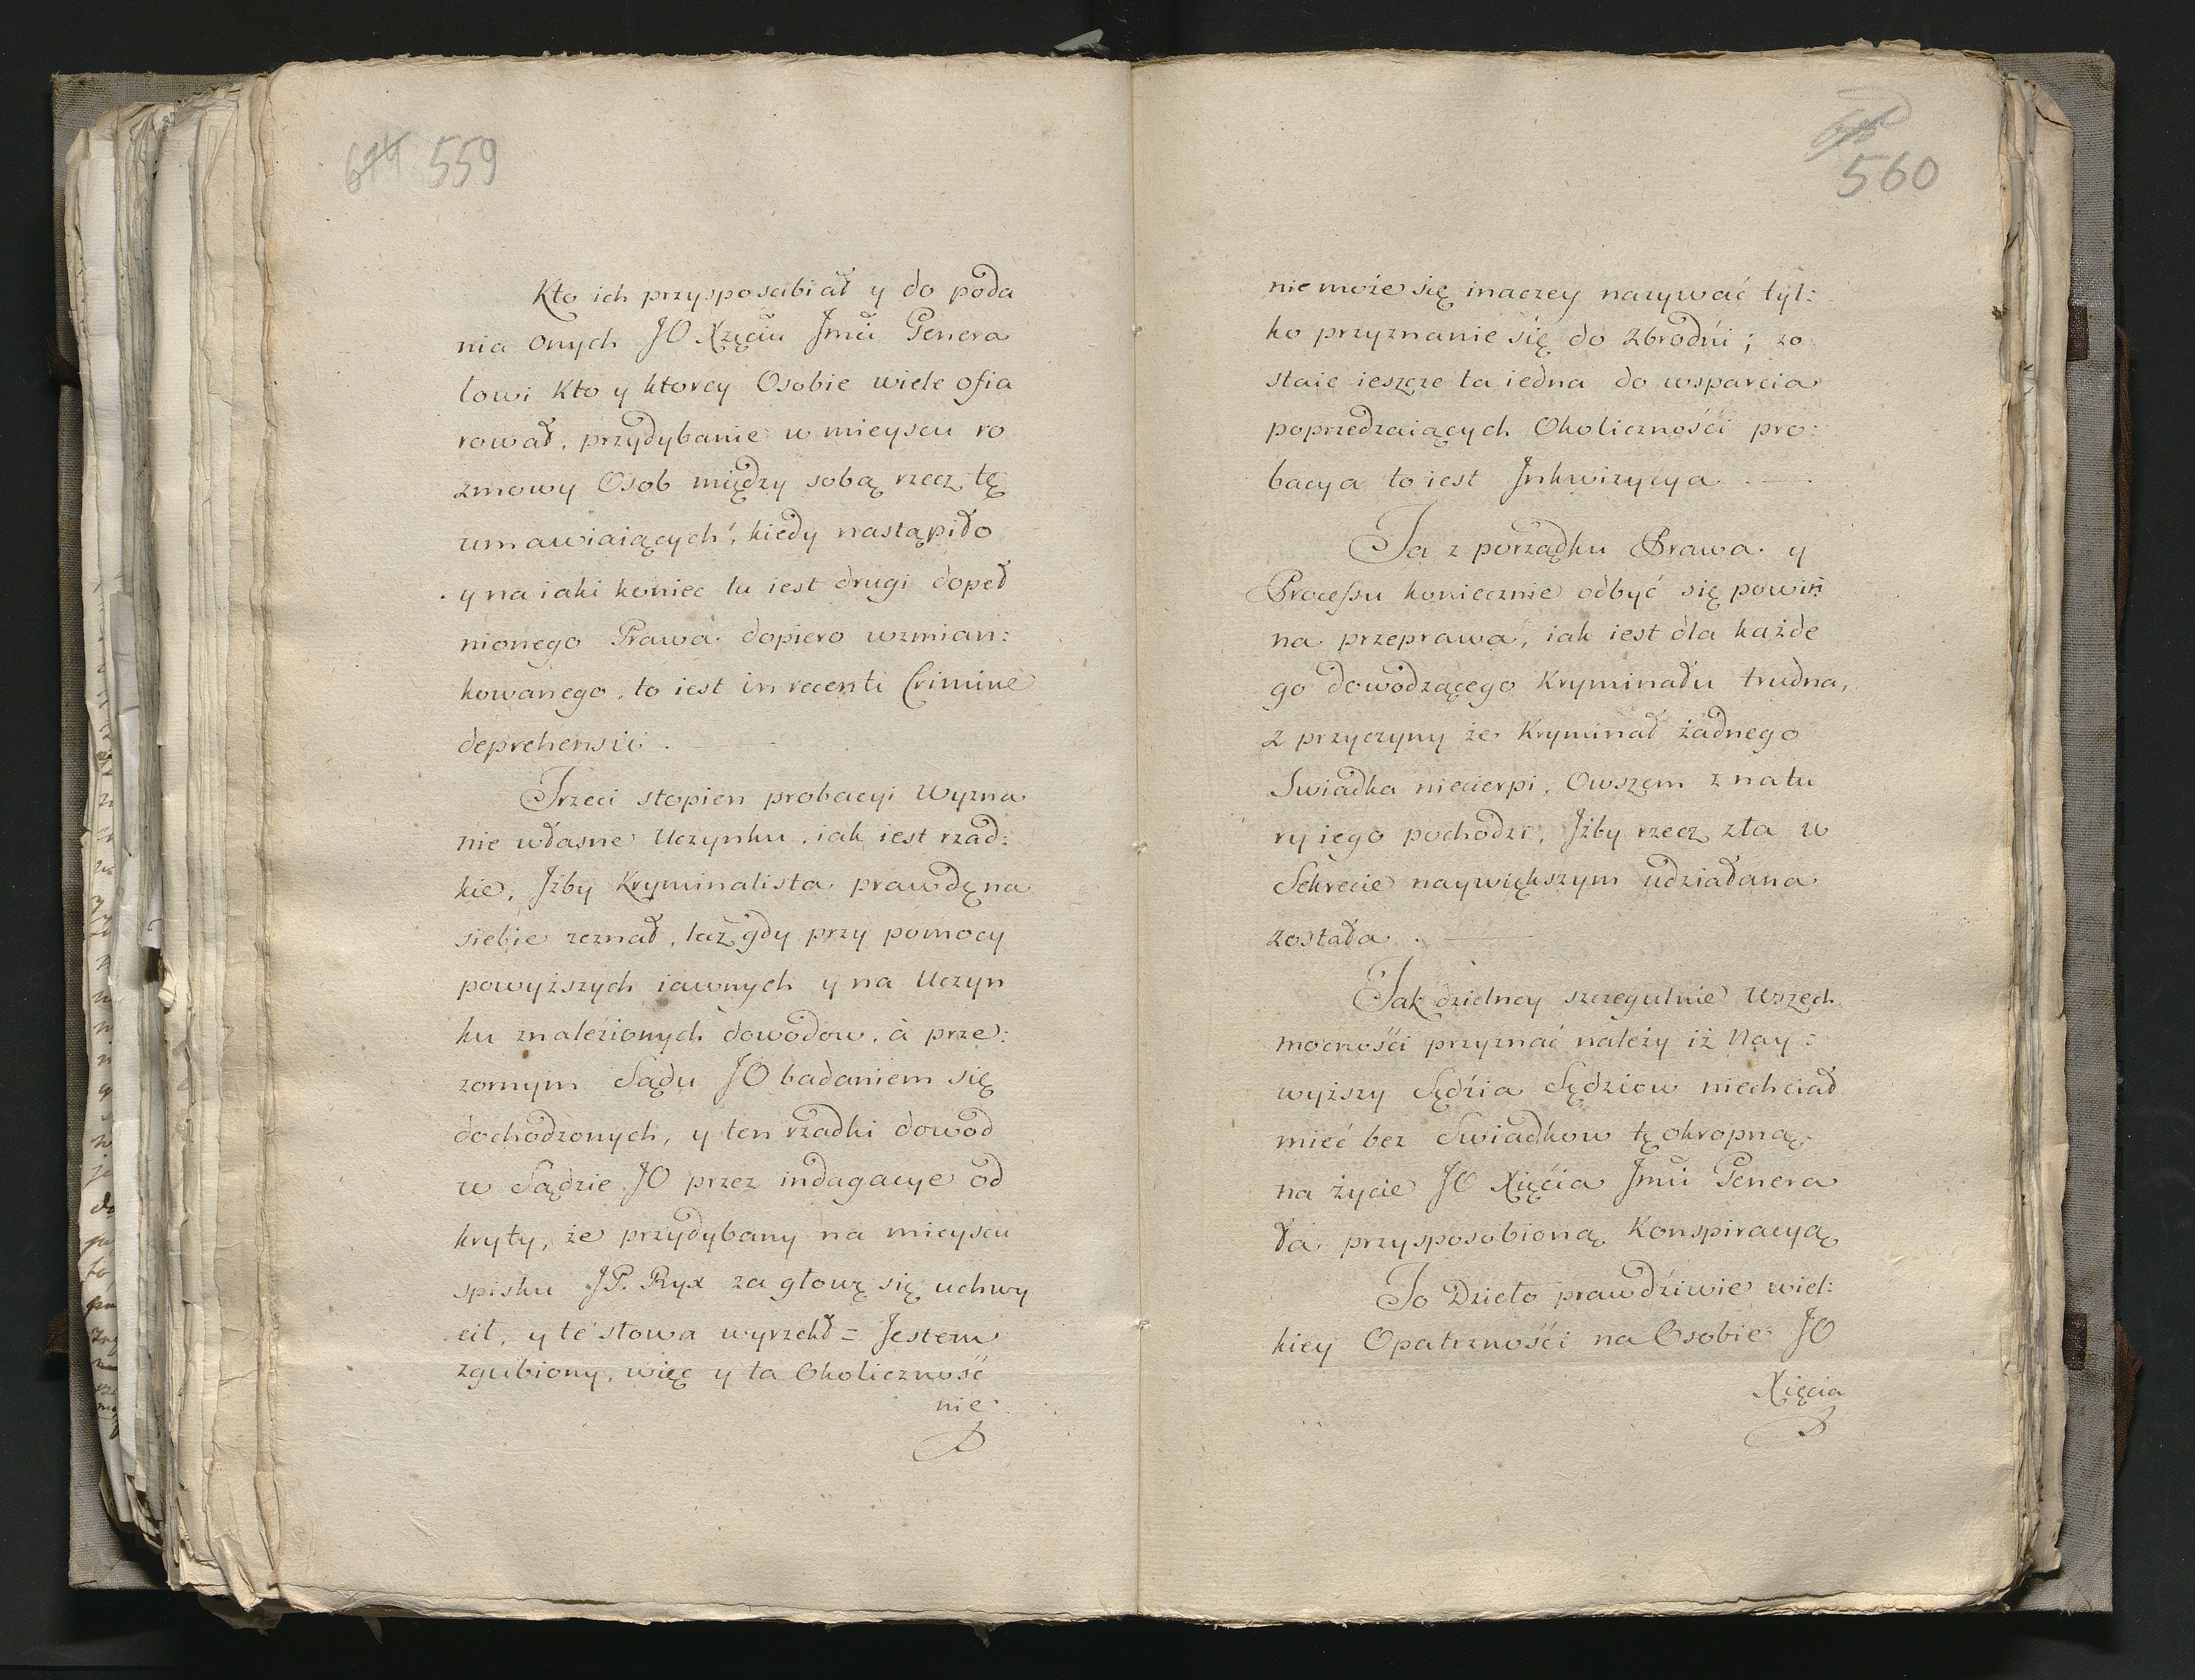 559
Kto ich przysposabiał y do poda
nia onych JO Xzęciu Jmci Genera
łowi kto y ktorey Osobie wiele ofia
rował, przydybanie w mieyscu ro
zmowy Osob między sobą rzecz tę
umawiaiących, kiedy nastąpiło
y na iaki koniec tu iest drugi dopeł
nionego Prawa dopiero wzmian:
kowanego, to iest in recenti Crimine
deprehensii.
Trzeci stopien probacyi Wyzna
nie własne Uczynku, iak iest rzad:
kie, Jżby Kryminalista prawdę na
siebie zeznał, lecz gdy przy pomocy
powyższych iawnych y na Uczyn
ku znalezionych dowodow, à prze:
zornym Sądu JO badaniem się
dochodzonych, y ten rzadki dowod
w Sądzie JO przez indagacye od
kryty, że przydybany na mieyscu
spisku JP. Ryx za głowę się uchwy
cił, y te słowa wyrzekł = Jestem
zgubiony, więc y ta Okoliczność
nie
560
nie może się inaczey nazywać tyl:
ko przyznanie się do zbrodni; zo
staie ieszcze ta iedna do wsparcia
poprzedzaiących Okolicznośći pro:
bacya to iest Jnkwizycya
Ta z porządku Prawa y
Processu koniecznie odbyć się powiñ
na przeprawa, iak iest dla każde
go dowodzącego Kryminału trudna,
z przyczyny że Kryminał żadnego
Swiadka niecierpi, Owszem z natu
ry iego pochodzi, Jżby rzecz zła w
Sekrecie naywiększym udziałana
została.
Tak dzielney szczegulnie Wszech
mocnośći przyznać należy iż Nay:
wyższy Sędzia Sędziow niechciał
mieć bez Swiadkow tę okropną
na życie JO Xięćia Jmci Genera
ła przysposobioną Konspiracyą
To Dzieło prawdziwie wiel:
kiey Opatrznośći na Osobie JO
Xięcia